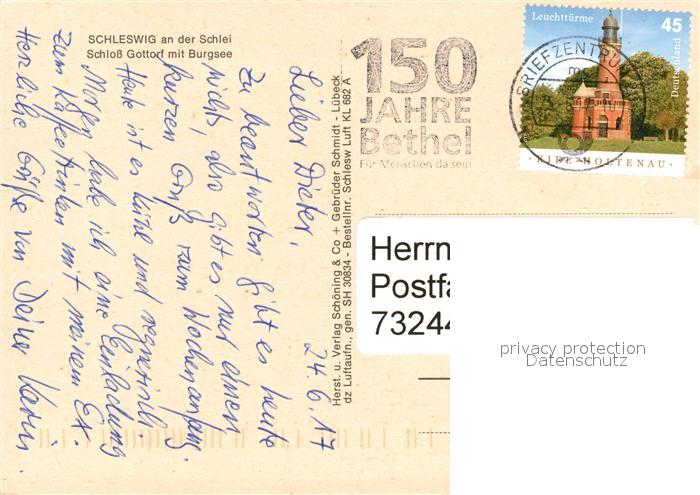 SCHLESWIG an der Schlei
Schloß Gottorf mit Burgsee
24.6.17
Lieber Dieter,
zu beantworten gibt es heute
nichts also gibt es nur einen
kurzen Gruß zum Wochenanfang.
Heute ist es kühl und regnerisch.
Morgen habe ich eine Einladung
zum Kaffeetrinken mit meinem Ex.
Herzliche Grüße von Deiner Karin.
Herst. u. Verlag Schöning & Co + Gebrüder Schmidt - Lübeck
dz Luftaufn., gen. SH 30834 - Bestellnr. Schlesw Luft KL 682 A
150
JAHRE
Bethel
Für Menschen da sein
BRIEFZENTRUM
Leuchttürme
45
Deutschland
KIEL-HOLTENAU
Herrn
Postfa
73244
privacy protection
Datenschutz